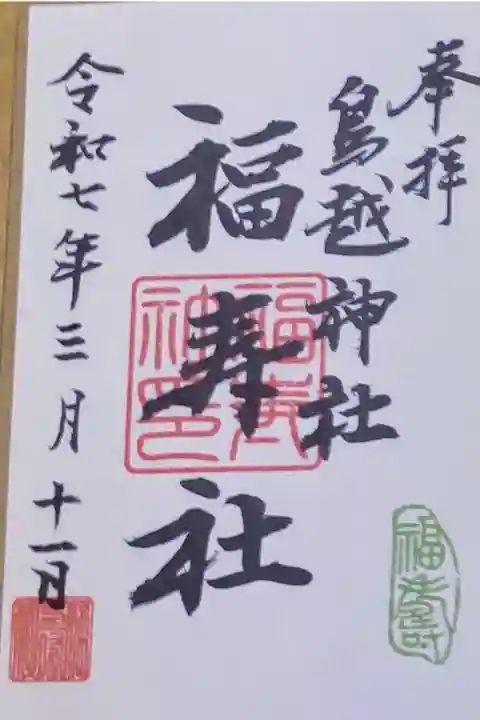 奉拝
鳥越神社
福寿社
令和七年三月十一日
福寿